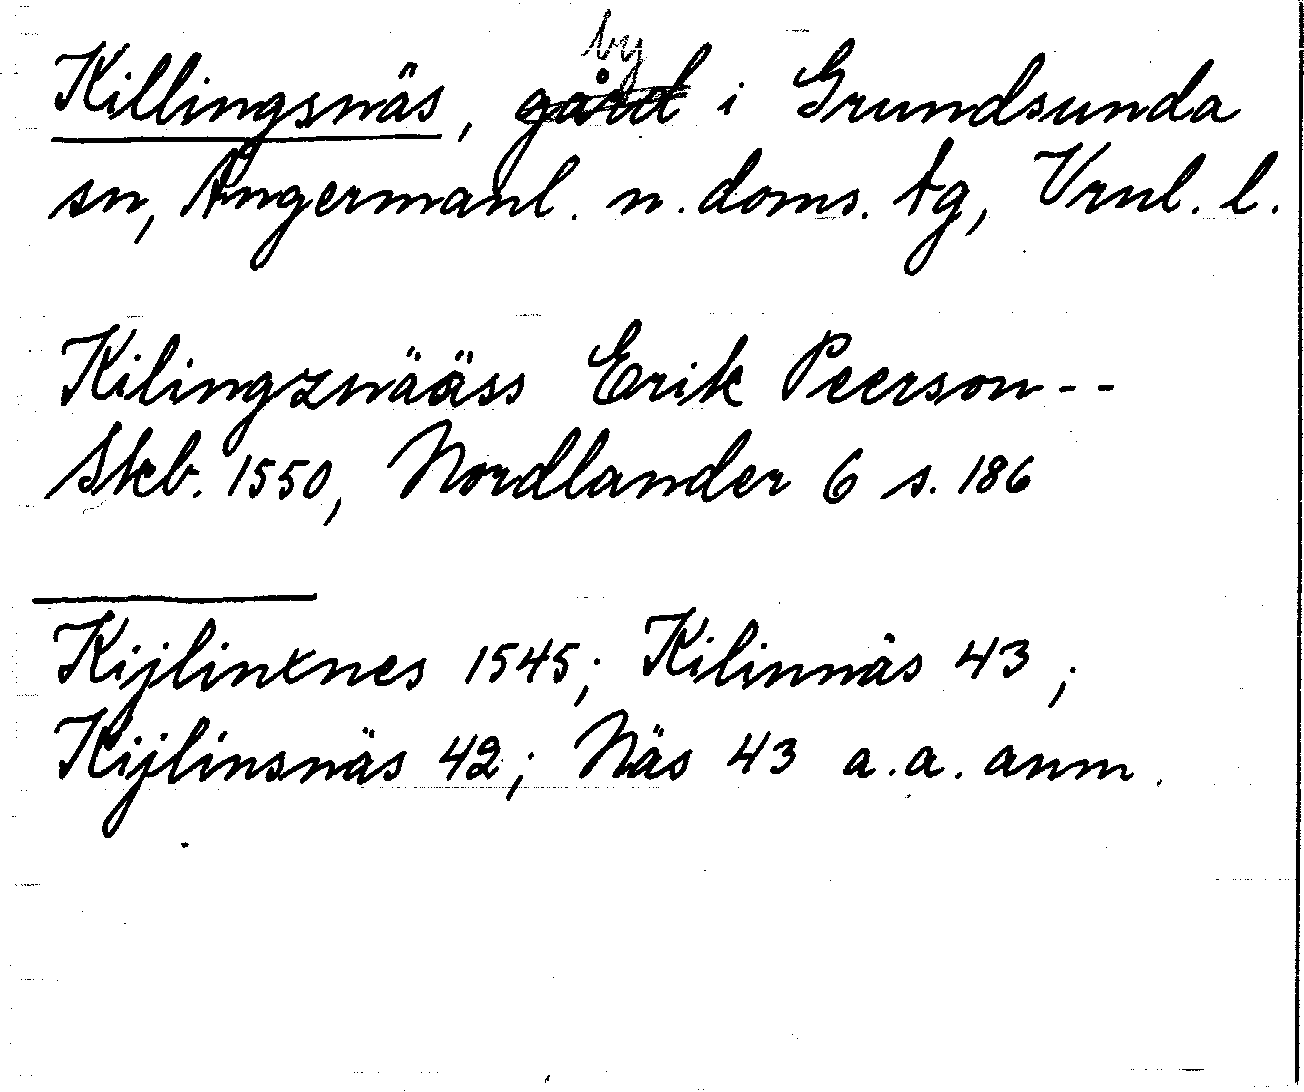 by
Killingsnäs, gård i Grundsunda
sn, Ångermanl. n. doms. tg, Vrnl. l.
Kilingznääss Erik Peerson --
Skb. 1550, Nordlander 6 s. 186
Kijlinxnes 1545; Kilinnäs 43;
Kijlinsnäs 42; Näs 43 a.a. anm.